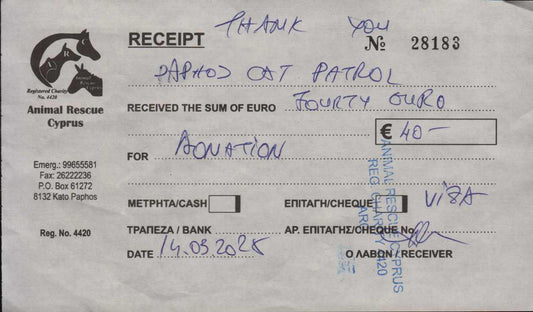 THANK YOU
RECEIPT
№ 28183
PAPHOS CAT PATROL
Registered Charity
No. 4420
Animal Rescue
Cyprus
RECEIVED THE SUM OF EURO FOURTY EURO
€ 40-
FOR DONATION
Emerg.: 99655581
Fax: 26222236
P.O. Box 61272
8132 Kato Paphos
ΜΕΤΡΗΤΑ/CASH
ΕΠΙΤΑΓΗ/CHEQUE VISA
Reg. No. 4420
ΤΡΑΠΕΖΑ / BANK
ΑΡ. ΕΠΙΤΑΓΗΣ/CHEQUE No
DATE 14.03.2025
Ο ΛΑΒΩΝ / RECEIVER
ANIMAL RESCUE CYPRUS
REG. CHARITY 4420